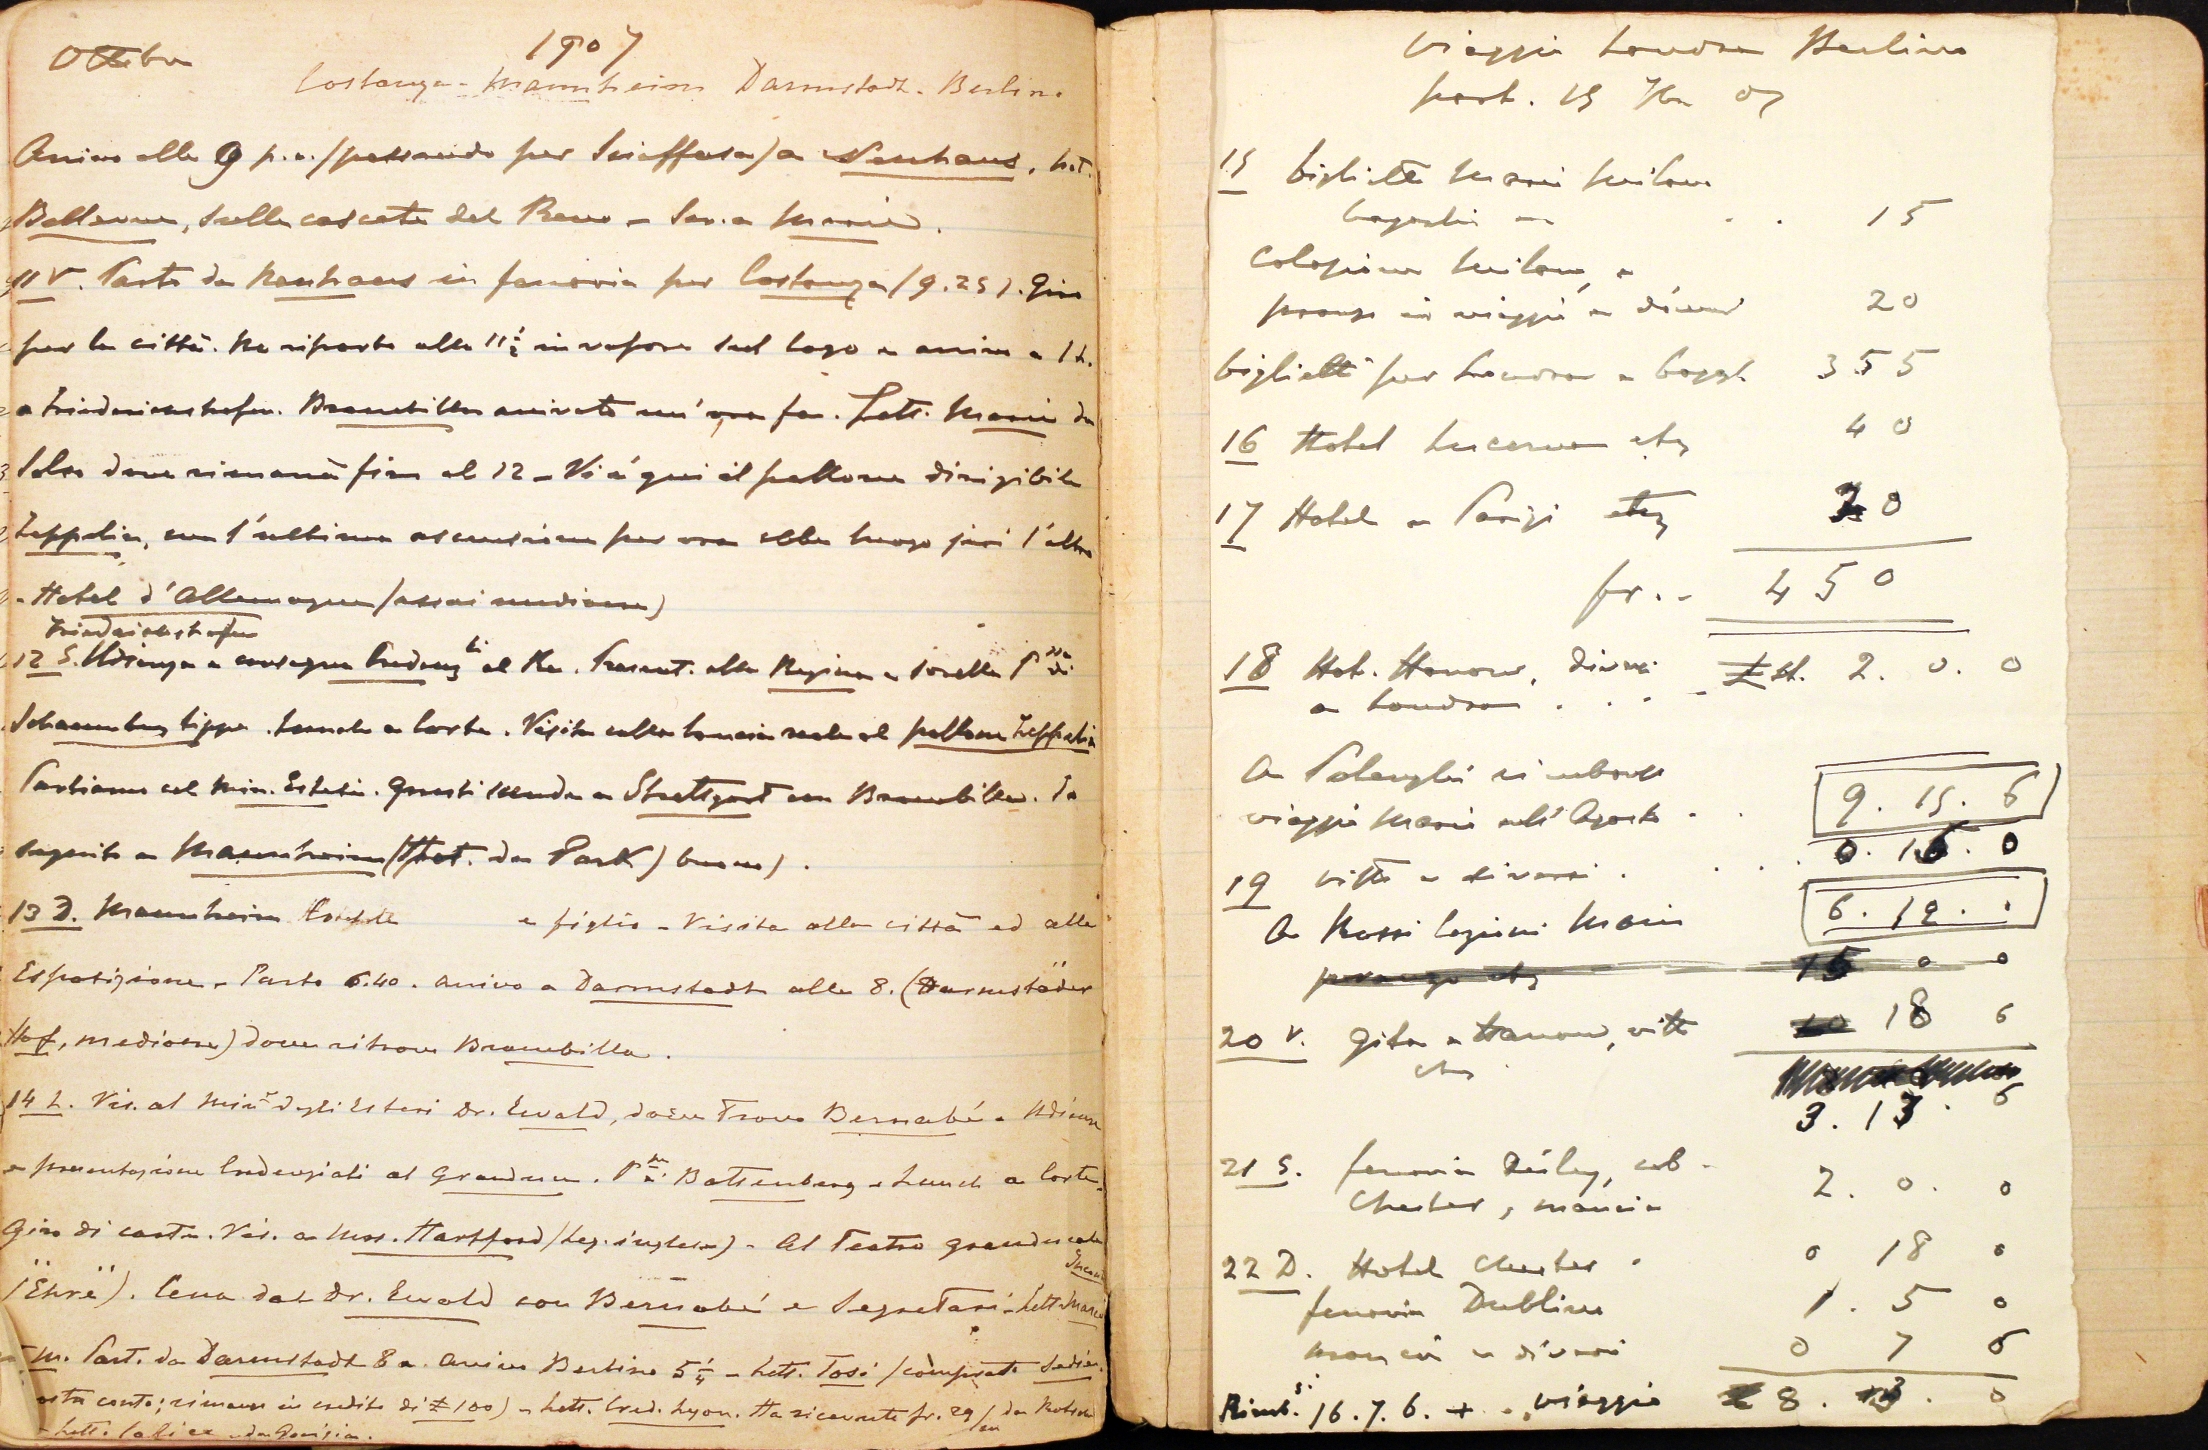 Ottobre 1907
Costanza - Mannheim Darmstadt - Berlino
Arrivo alle 9 p.m. (passando per Sciaffusa) a Neuhaus, hot.
Bellevue, sulle cascate del Reno - Scr. a Maria.
11 V. Parto da Neuhaus in ferrovia per Costanza (9.25). Giro
per la città. Ne riparto alle 11 1/2 in vapore sul lago e arrivo a 1 h.
a Friedrichshafen. Brambilla arrivato un'ora fa. Lett. Maria da
dove rimarrà fino al 12 - Vi è qui il pallone dirigibile
Zeppelin, con l'ultima ascensione per ora ebbe luogo jeri l'altro
- Hotel d'Allemagne (assai mediocre)
Friedrichshafen
12 S. Udienza e consegna Credenz.li al Re. Present. alla Regina e sorella P.ssa di
Schaumburg Lippe. Lunch a Corte. Visita colla lancia reale al pallone Zeppelin
Partiamo col Min. Esteri. Questi scende a Stuttgart con Brambilla. Io
seguito a Mannheim (Hot. du Park) buono).
13 D. Mannheim e figlio - Visita alla città ed alla
Esposizione - Parto 6.40. arrivo a Darmstadt alle 8. (Darmstäder
Hof, mediocre) dove ritrovo Brambilla.
14 L. Vis. al Min.o degli Esteri Dr. Ewald, dove trovo Bernabé - Udienza
e presentazione Credenziali al Granduca. P. Battenberg - Lunch a Corte.
Giro di carte. Vis. a Mrs. Hartford (Leg. inglese) - Al Teatro granducale
("Ehre"). Cena dal Dr. Ewald con Bernabé e Segretari - Lett. Maria
M. Part. da Darmstadt 8 a. arrivo Berlino 5 1/4 - Lett. Tosi (comprate
conto; rimane in credito di £ 100) - Lett. Cred. Lyon. Ha ricevute fr. 29
Viaggio Londra Berlino
part. 15 7bre 07
15 biglietti Maria Milano
bagagli . . 15
Colazione Milano, e
pranzo in viaggio e diversi 20
biglietti per Londra e bagagl. 355
16 Hotel Lucerna etc 40
17 Hotel a Parigi etc 20
fr. - 450
18 Hot. Hanover, diversi £ st. 2. 0. 0
a Londra . . . -
A Polenghi rimborso 9. 15. 6
viaggio Maria all'Agosto - .
19 vitto e diversi . . . . 0. 16. 0
A Rossi lezioni Maria 6. 12. .
pranzo etc 15 0 0
20 V. Gita a Harrow, vitto 18 6
etc
3. 13. 6
21 S. ferrovia Chester, mancia 2. 0. 0
22 D. Hotel Chester . 0 18 0
ferrovia Dublino 1. 5 0
mancie e diversi 0 7 6
Rimb. si 16.7.6. + viaggio £ 8. 13. 0